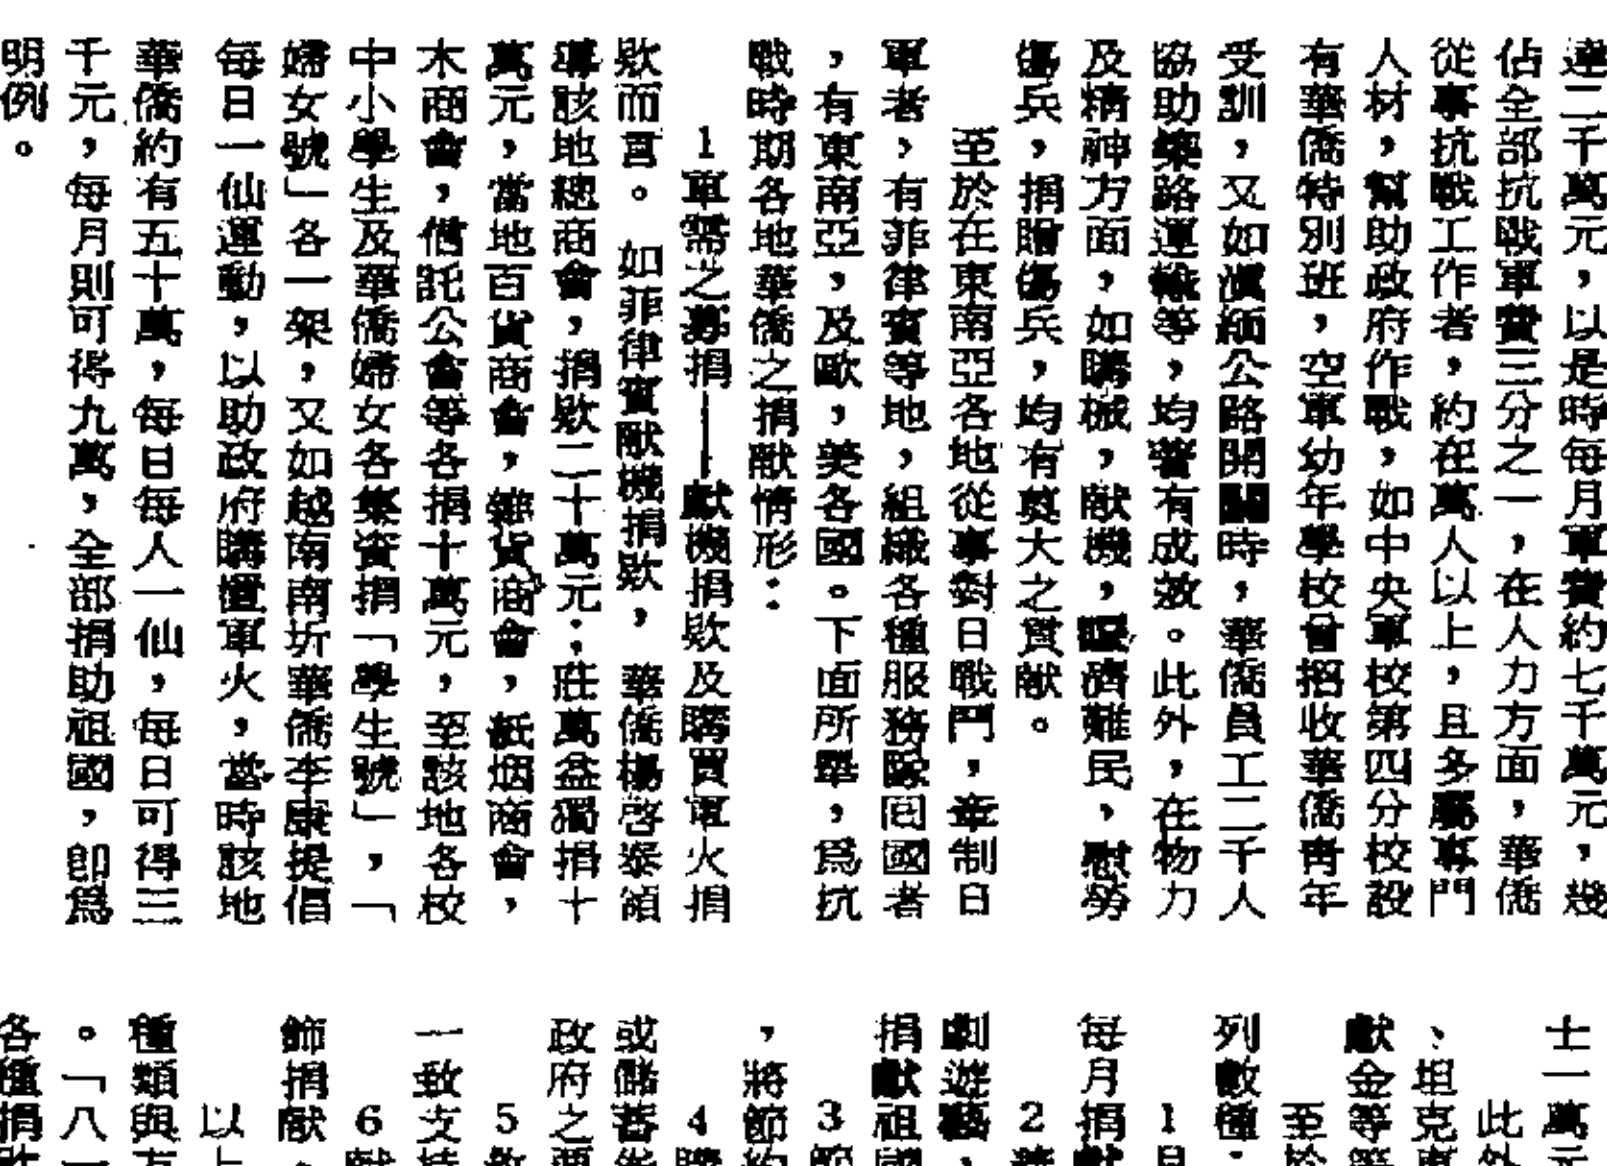 達二千萬元，以是時每月軍費約七千萬元，幾
佔全部抗戰軍費三分之一，在人力方面，華僑
從事抗戰工作者，約在萬人以上，且多屬專門
人材，幫助政府作戰，如中央軍校第四分校設
有華僑特別班，空軍幼年學校曾招收華僑青年
受訓，又如滇緬公路開闢時，華僑員工二千人
協助築路運輸等，均著有成效。此外，在物力
及精神方面，如購械，献機，賑濟難民，慰勞
傷兵，捐贈傷兵，均有莫大之貢献。
至於在東南亞各地從事對日戰鬥，牽制日
軍者，有菲律賓等地，組織各種服務隊回國者
，有東南亞，及歐，美各國。下面所舉，爲抗
戰時期各地華僑之捐献情形：
1軍需之募捐——献機捐欵及購買軍火捐
欵而言。如菲律賓献機捐欵，華僑楊啓泰領
導該地總商會，捐欵二十萬元；莊萬益獨捐十
萬元，當地百貨商會，雜貨商會，紙烟商會，
木商會，信託公會等各捐十萬元，至該地各校
中小學生及華僑婦女各集資捐「學生號」，「
婦女號」各一架，又如越南南圻華僑李康提倡
每日一仙運動，以助政府購置軍火，當時該地
華僑約有五十萬，每日每人一仙，每日可得三
千元，每月則可得九萬，全部捐助祖國，即爲
明例。
士一萬元
此外
、坦克
献金等
至於
列數種：
1
每月捐献
2
劇遊藝，
捐献祖國
3節
，將節約
4購
或儲蓄
政府之
5
一致支
6献
飾捐献，
以上
種類與方
。「八一
各種捐